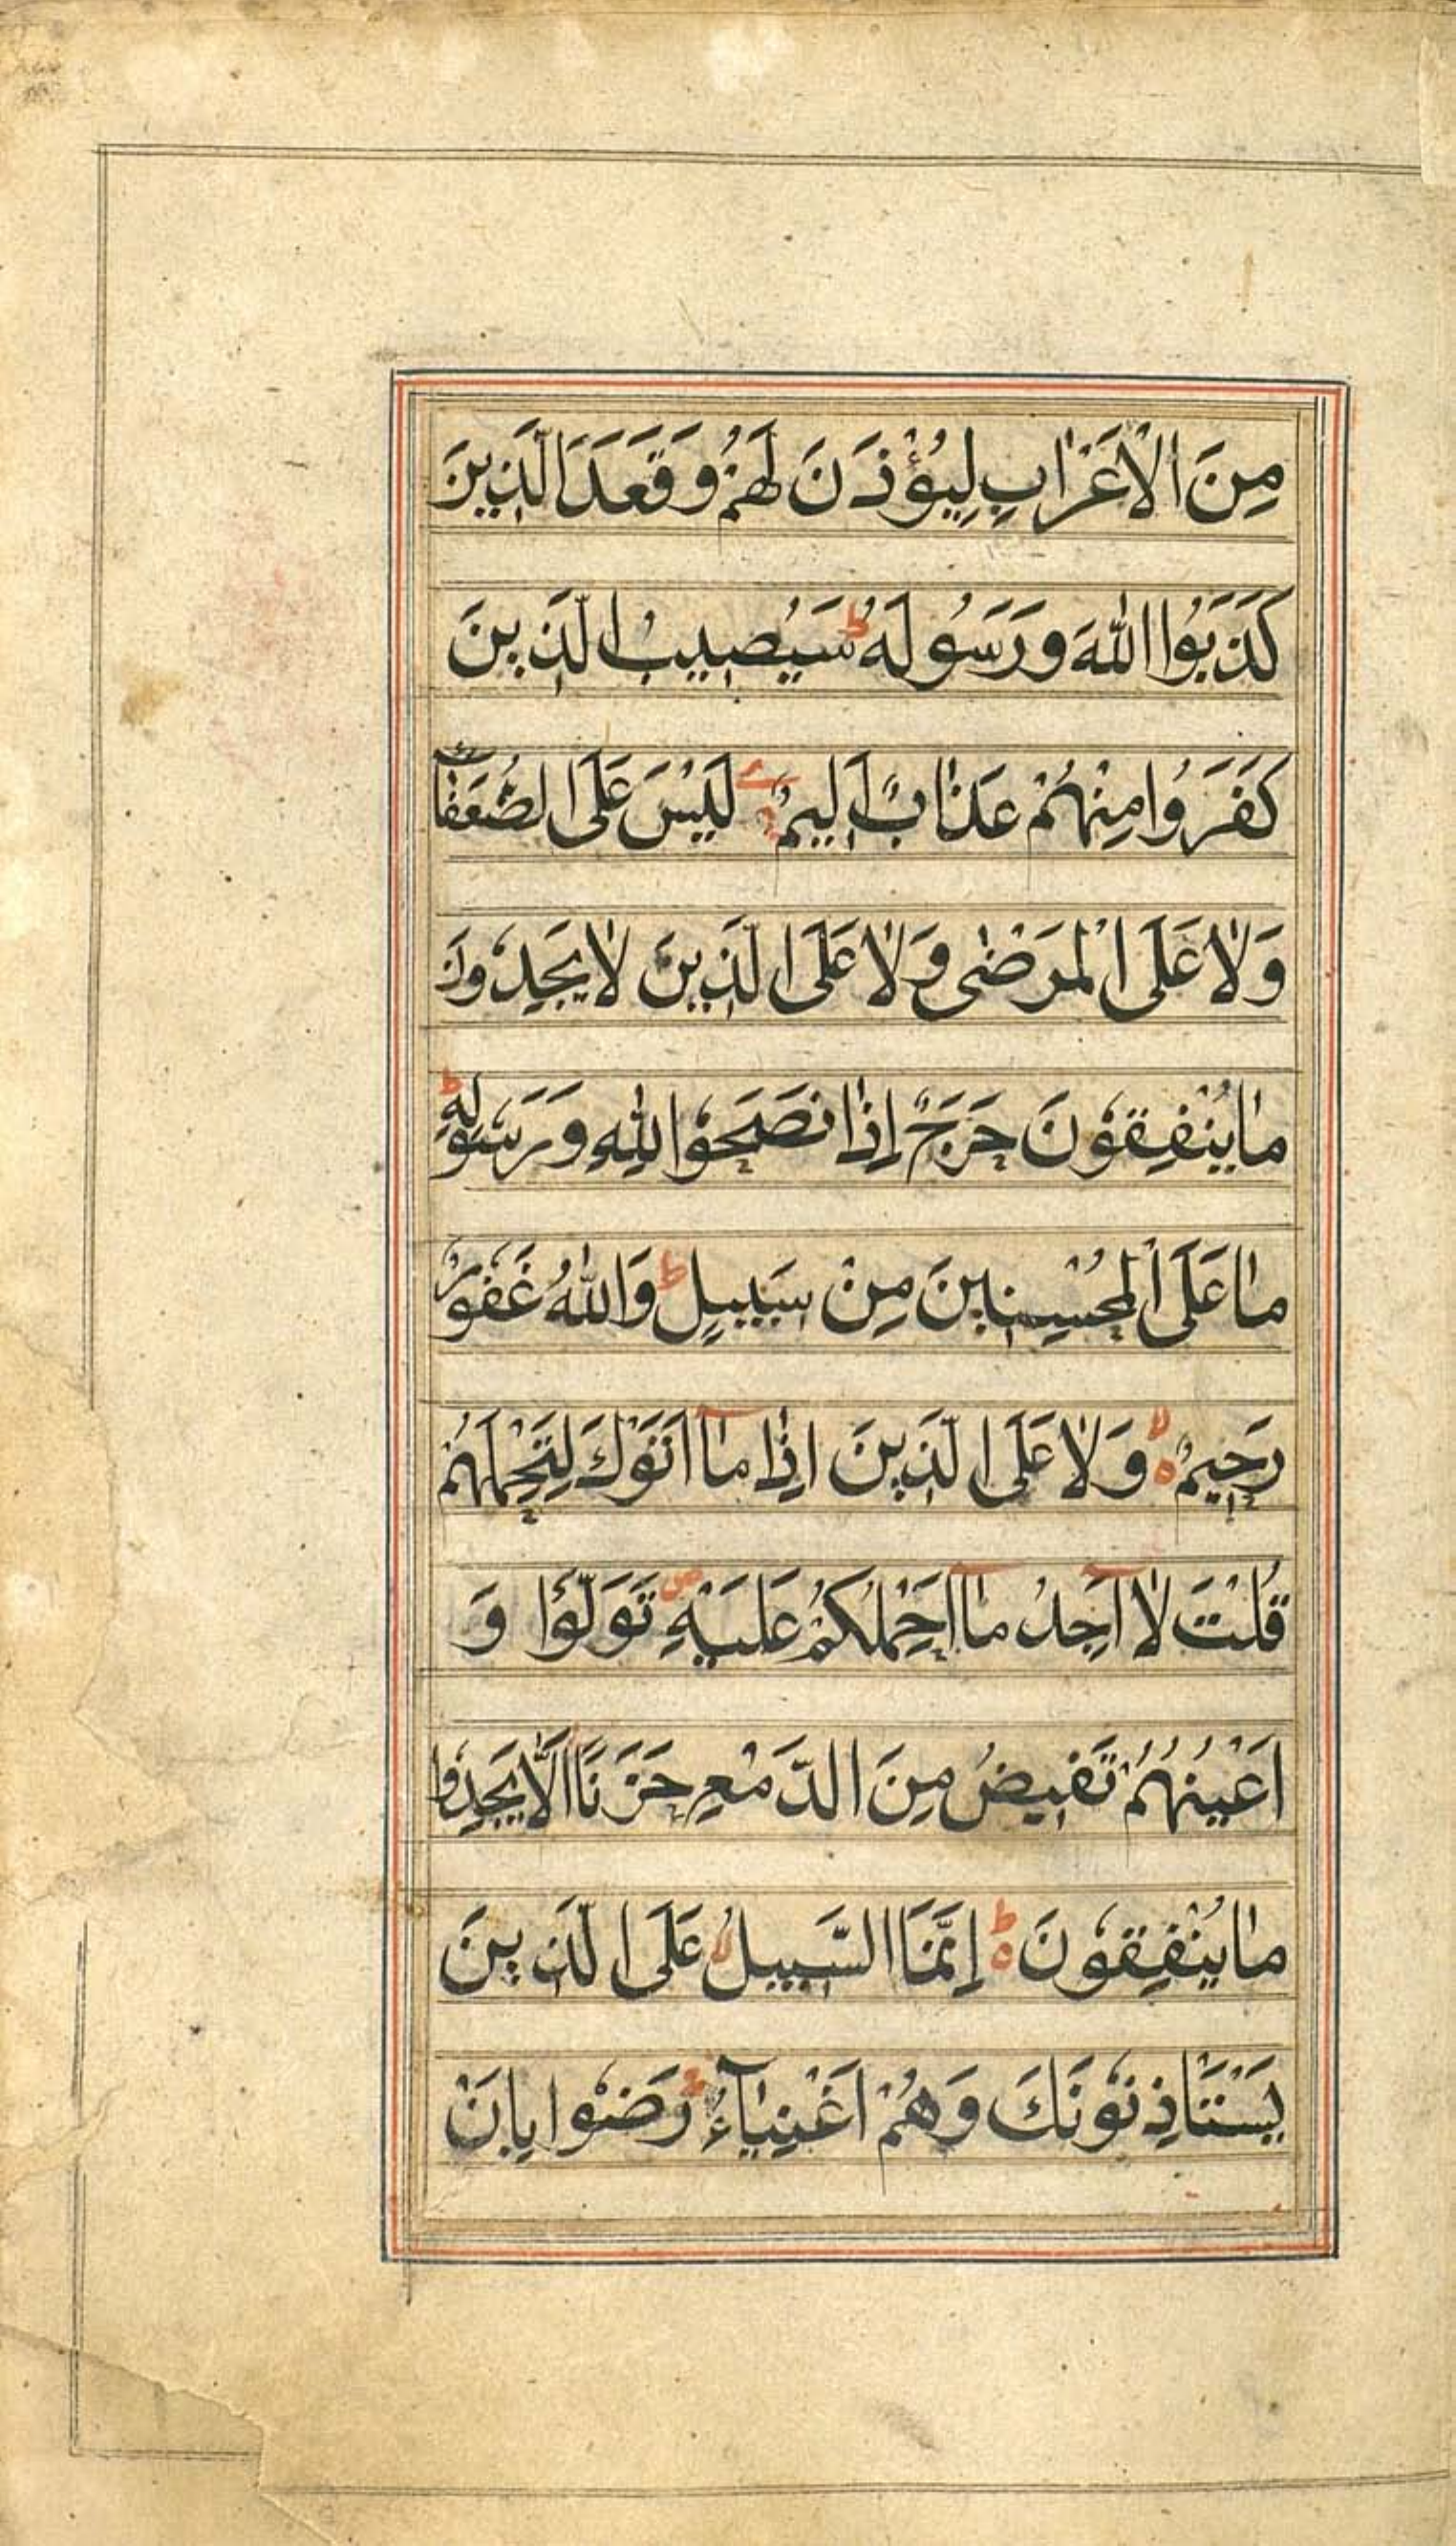 مِنَ الْاَعْرَابِ لِيُؤْذَنَ لَهُمْ وَقَعَدَ الَّذِينَ
كَذَبُوا اللّٰهَ وَرَسُولَهُ ط سَيُصِيبُ الَّذِينَ
كَفَرُوا مِنْهُمْ عَذَابٌ اَلِيمٌ لَيْسَ عَلَى الضُّعَفَاءِ
وَلَا عَلَى الْمَرْضٰى وَلَا عَلَى الَّذِينَ لَا يَجِدُونَ
مَا يُنْفِقُونَ حَرَجٌ اِذَا نَصَحُوا لِلّٰهِ وَرَسُولِهٖ ط
مَا عَلَى الْمُحْسِنِينَ مِنْ سَبِيلٍ ط وَاللّٰهُ غَفُورٌ
رَحِيمٌ لا ه وَلَا عَلَى الَّذِينَ اِذَا مَآ اَتَوْكَ لِتَحْمِلَهُمْ
قُلْتَ لَآ اَجِدُ مَآ اَحْمِلُكُمْ عَلَيْهِ ص تَوَلَّوْا وَ
اَعْيُنُهُمْ تَفِيضُ مِنَ الدَّمْعِ حَزَنًا اَلَّا يَجِدُوا
مَا يُنْفِقُونَ ط ه اِنَّمَا السَّبِيلُ عَلَى الَّذِينَ
يَسْتَاْذِنُونَكَ وَهُمْ اَغْنِيَآءُ رَضُوا بِاَنْ